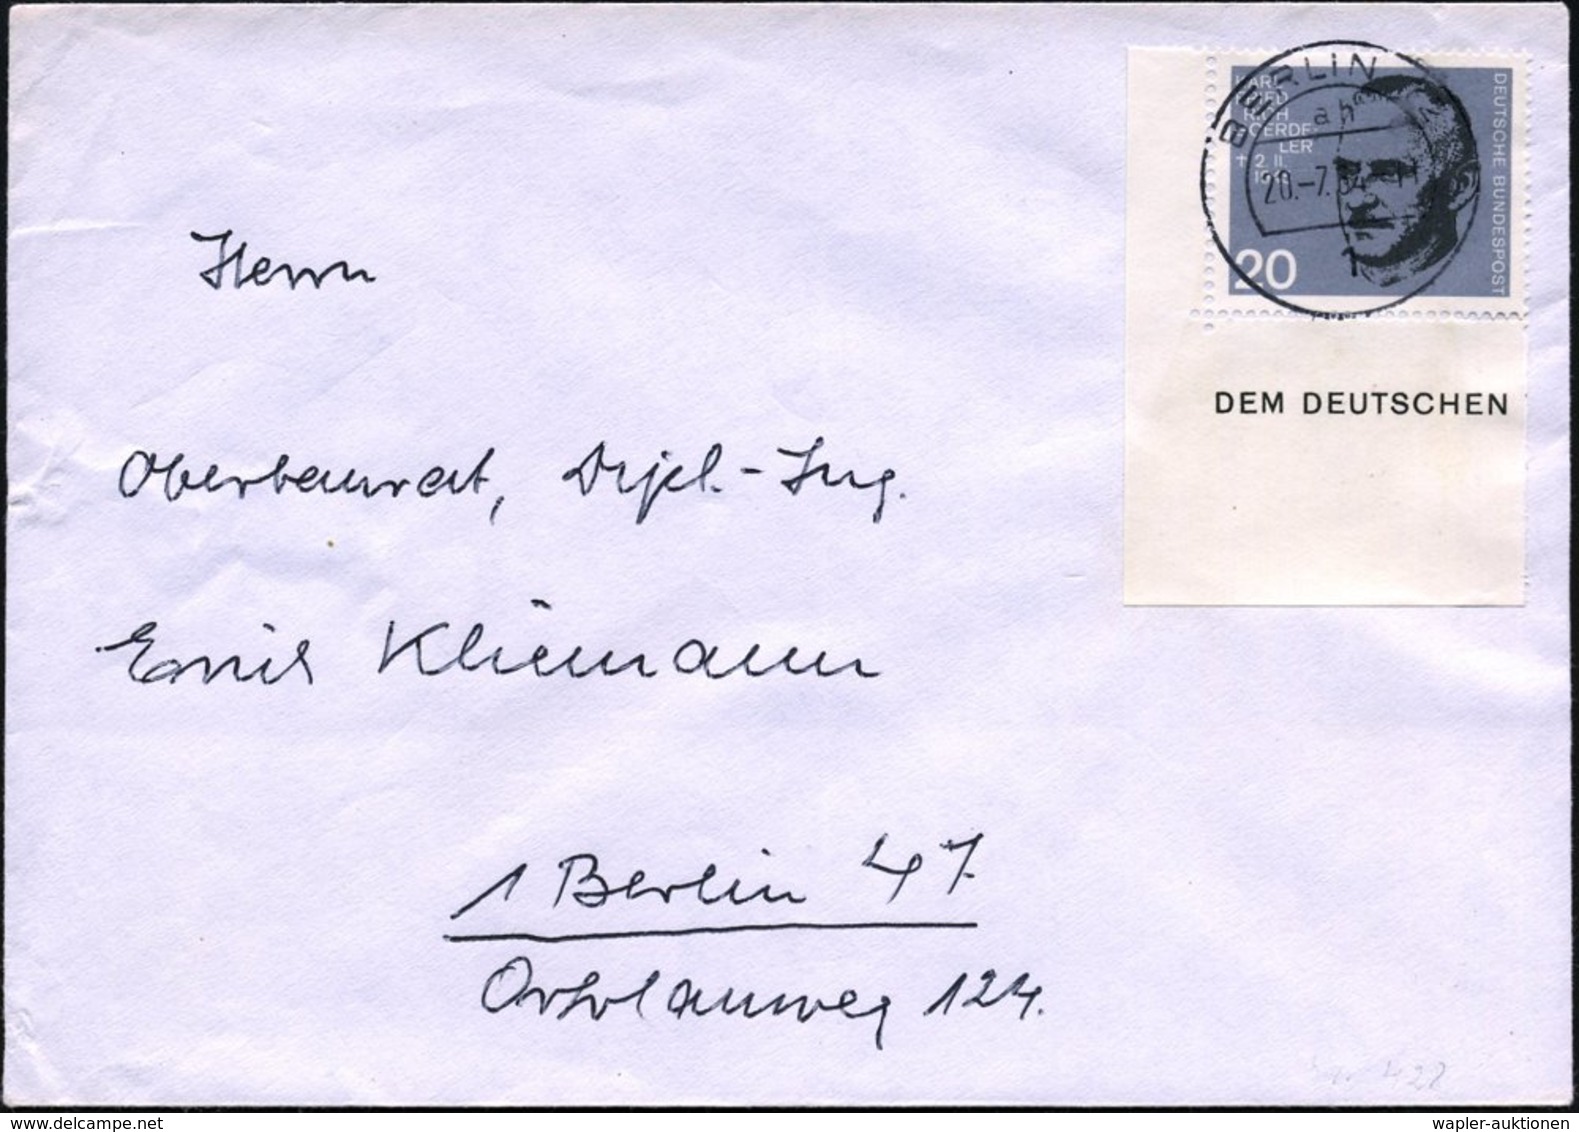 BERLIN
ah
20.-7.64
1
KARL
FRIED
RICH
GOERDE
LER
† 2. II.
DEUTSCHE BUNDESPOST
20
DEM DEUTSCHEN
Herrn
Oberbaurat, Dipl.-Ing.
Emil Kliemann
1 Berlin 47
Ortolanweg 124.
wapler-auktionen